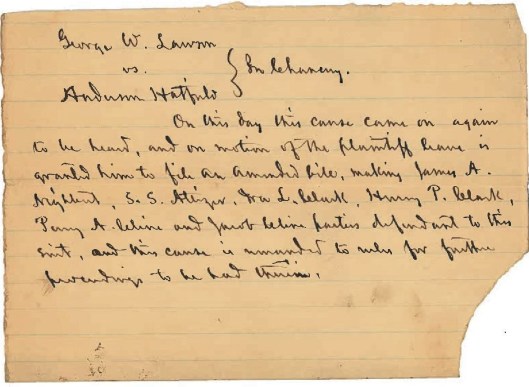 George W. Lawson
vs. } In Chancery.
Anderson Hatfield
On this day this cause came on again
to be heard, and on motion of the plaintiff leave is
granted him to file an amended bill, making James A.
Nighbert, S. S. Altizer, Wm L. Clark, Henry P. Clark,
Perry A. Cline and Jacob Cline parties defendant to this
suit, and this cause is remanded to rules for further
proceedings to be had therein.